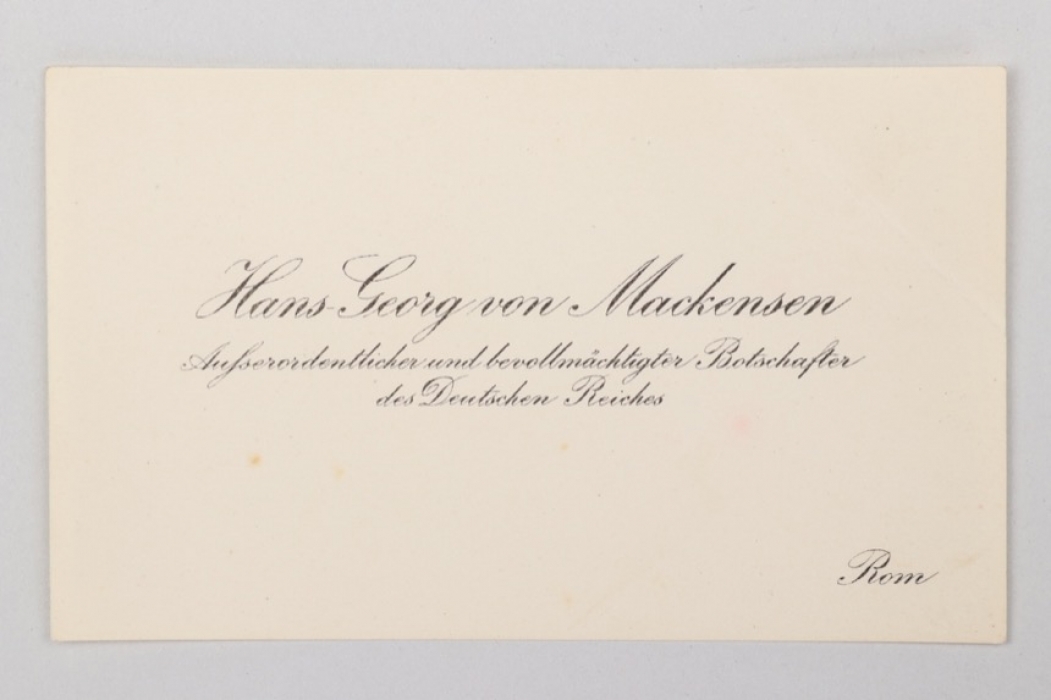 Hans-Georg von Mackensen
Außerordentlicher und bevollmächtigter Botschafter
des Deutschen Reiches
Rom